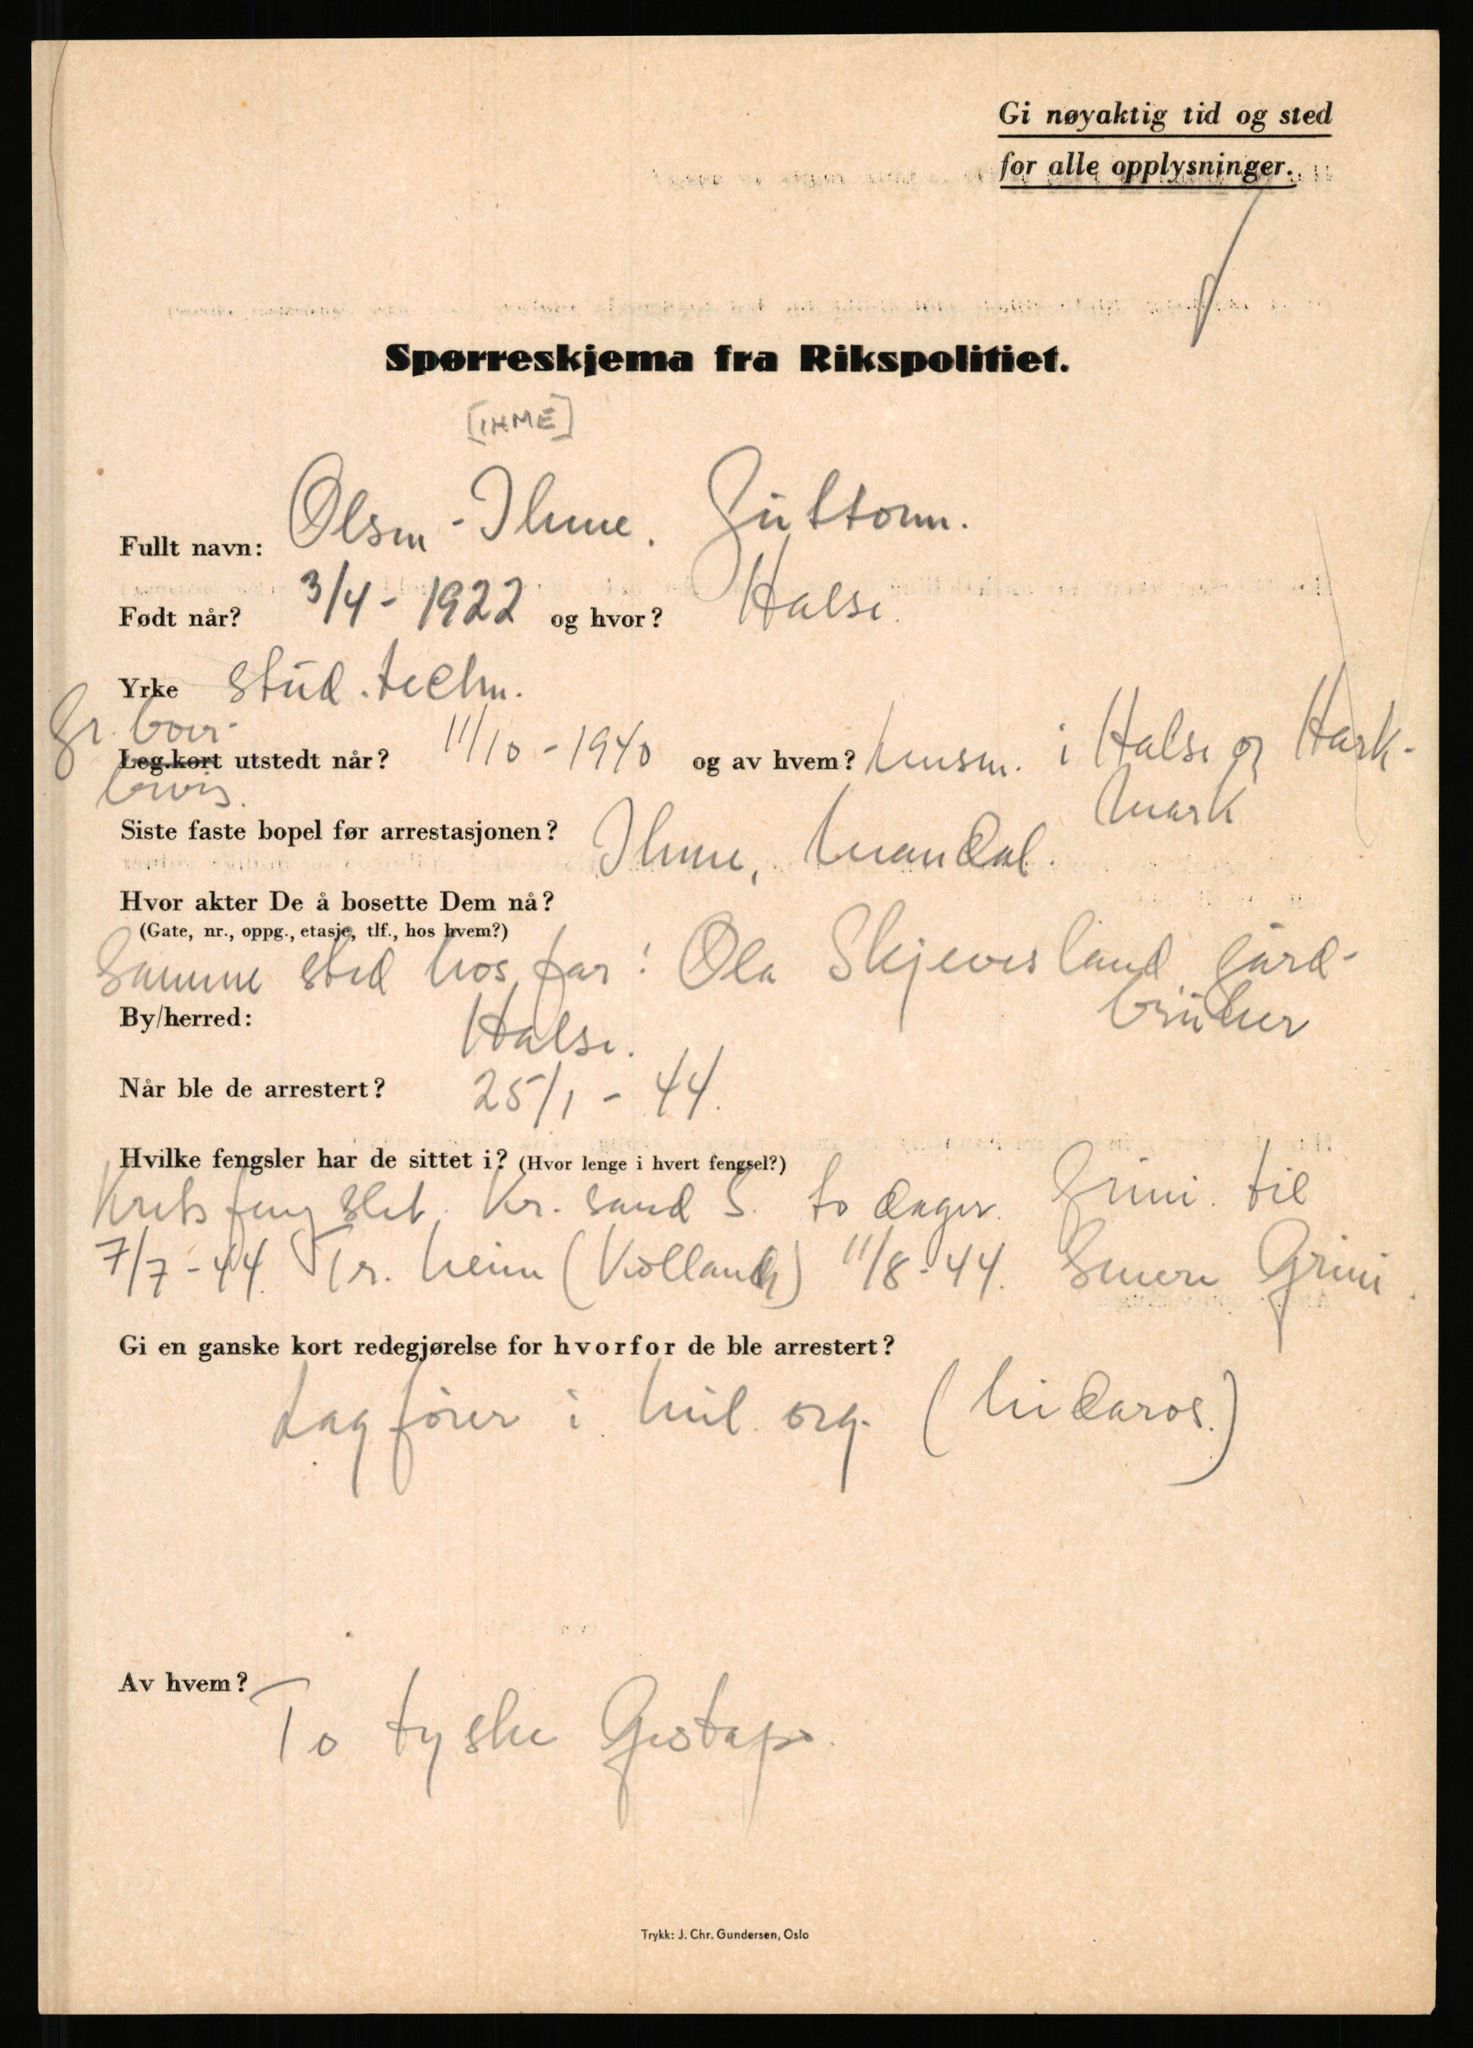 Gi nøyaktig tid og sted
for alle opplysninger.
Spørreskjema fra Rikspolitiet.
[IHME]
Fullt navn: Olsen - Ihme. Guttorm.
Født når? 3/4 - 1922 og hvor? Halse.
Yrke stud. techn.
Gr. boer-
Leg.kort utstedt når? 11/10 - 1940 og av hvem? Lensm. i Halse og Hark-
bevis. mark
Siste faste bopel før arrestasjonen? Ihme, Mandal.
Hvor akter De å bosette Dem nå?
(Gate, nr., oppg., etasje, tlf., hos hvem?)
Samme sted hos far: Ola Skjevesland gård-
bruker
By/herred: Halse.
Når ble de arrestert? 25/1 - 44.
Hvilke fengsler har de sittet i? (Hvor lenge i hvert fengsel?)
Kretsfengslet. Kr. sand S. to dager. Grini. til
7/7 - 44. Tr. heim (Vollan) 11/8 - 44. Senere Grini.
Gi en ganske kort redegjørelse for hvorfor de ble arrestert?
Lagfører i Mil. org. (Nidaros.)
Av hvem?
To tyske Gestapo.
Trykk: J. Chr. Gundersen, Oslo